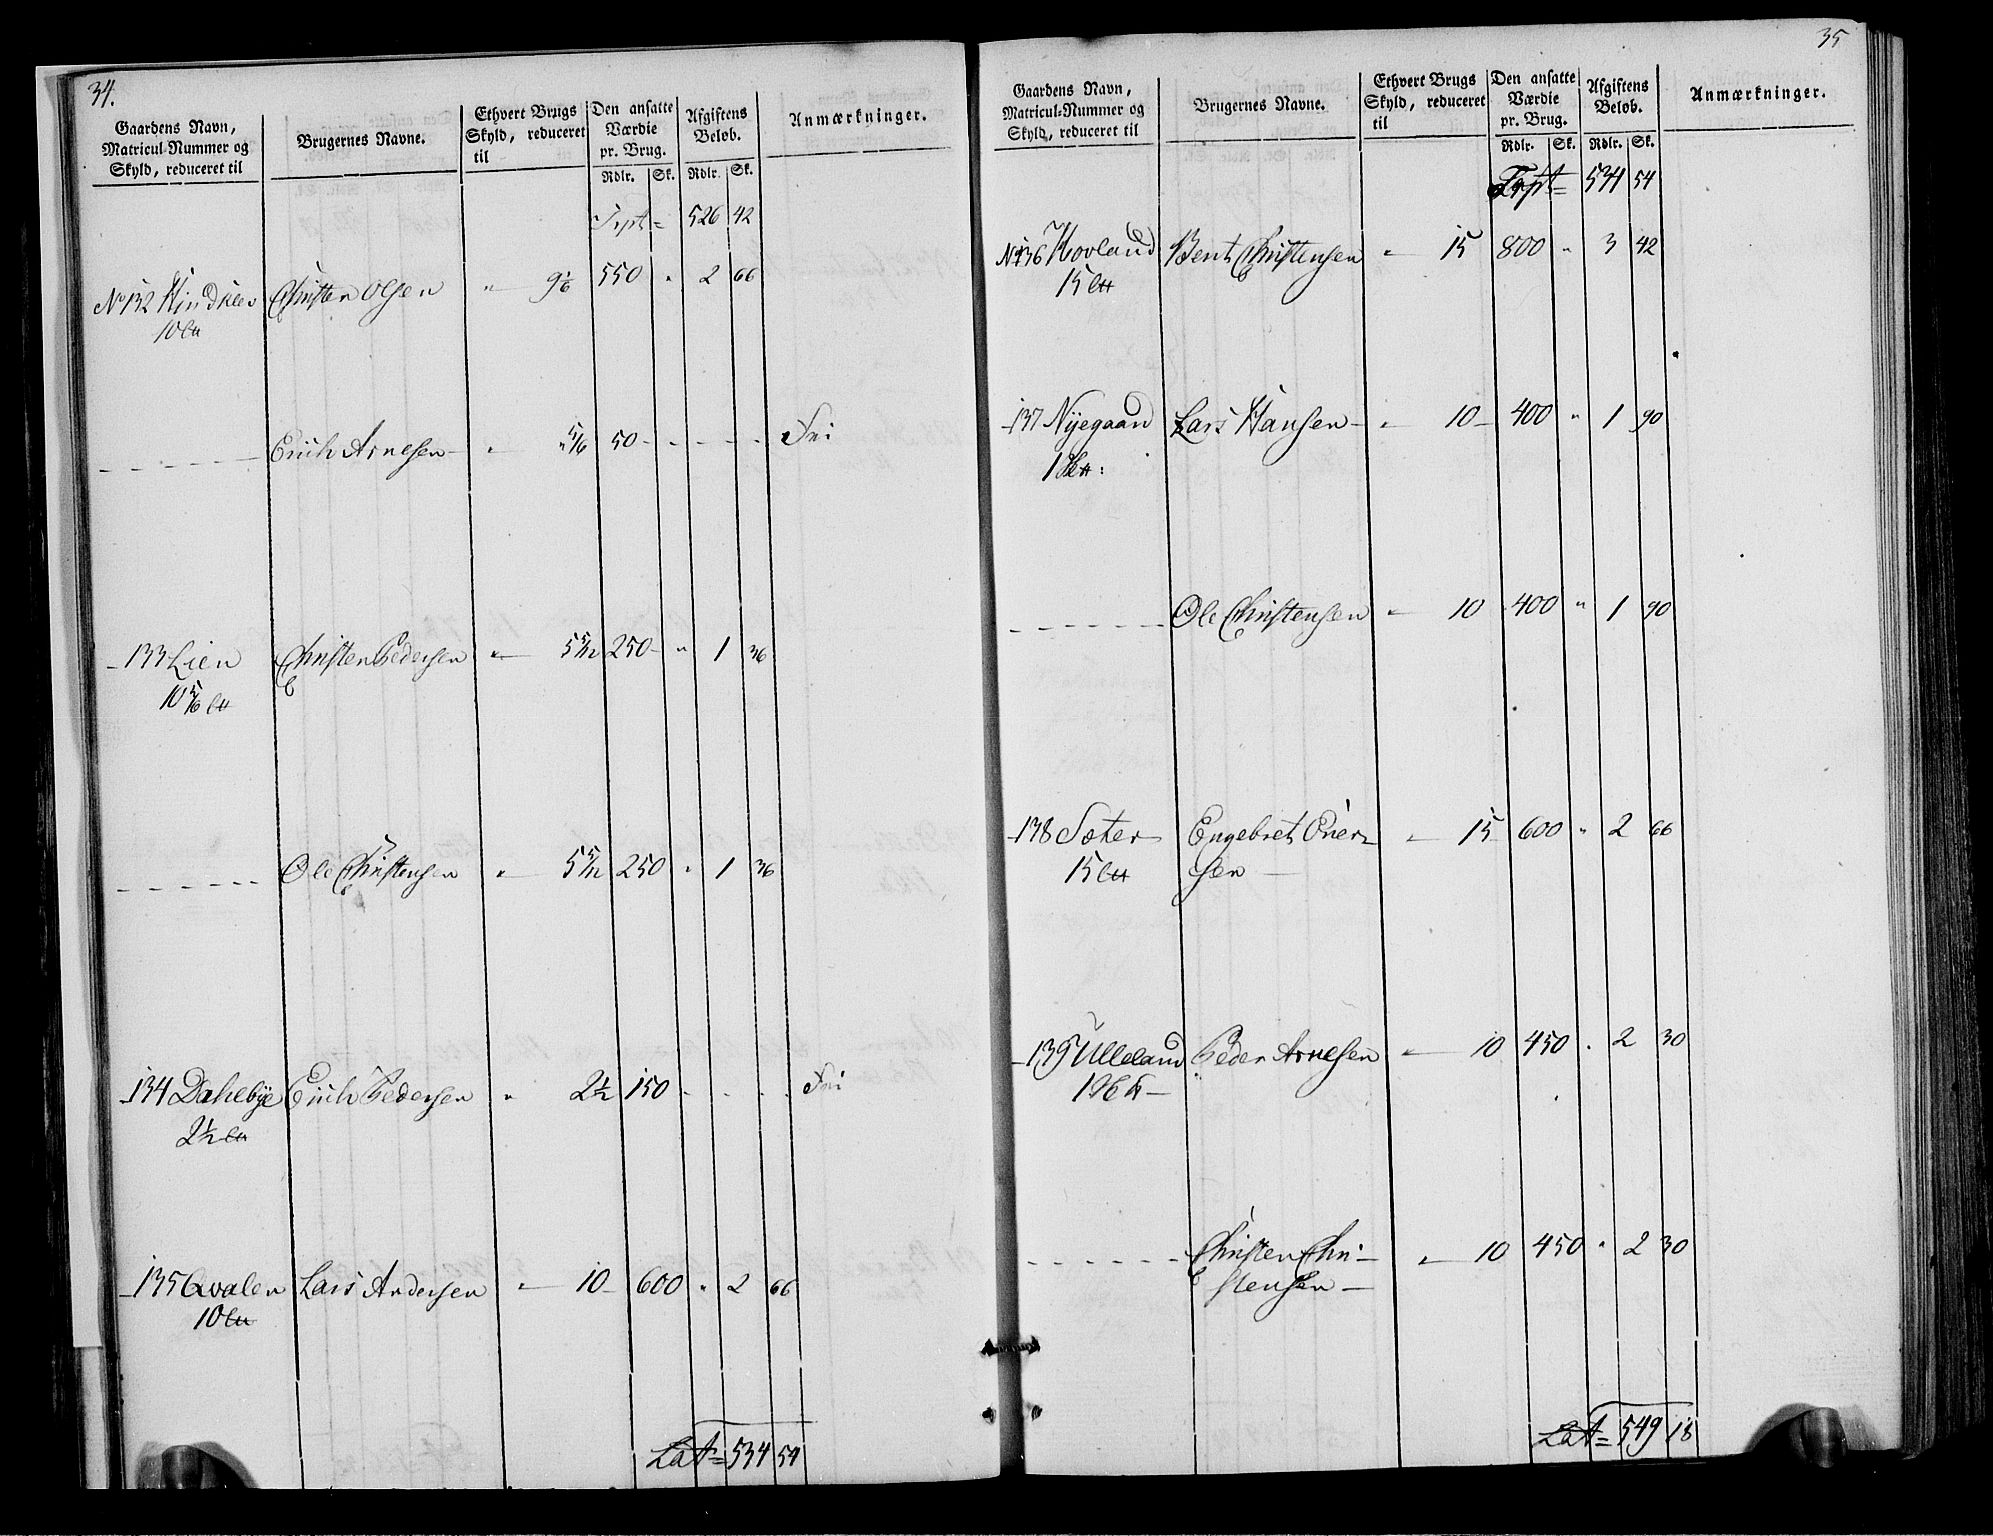 34.
Gaardens Navn, Matricul-Nummer og Skyld, reduceret til | Brugernes Navne. | Ethvert Brugs Skyld, reduceret til | Den ansatte Værdie pr. Brug. Rdlr. Sk. | Afgiftens Beløb. Rdlr. Sk. | Anmærkninger.
Trpt = 526 42
No 132 Hindklev Christen Olsen " 9 1/6 550 " 2 66
10 lb
Erich Arnesen " 5/6 50 - - - - Fri
133 Lien Christen Pedersen " 5 5/12 250 " 1 36
10 5/6 lb
Ole Christensen " 5 5/12 250 " 1 36
134 Dahlebye Erich Pedersen " 2 1/2 150 - - - Fri
2 1/2 lb
135 Qvalen Lars Andersen " 10 600 " 2 66
10 lb
Lat = 534 54
35
Gaardens Navn, Matricul-Nummer og Skyld, reduceret til | Brugernes Navne. | Ethvert Brugs Skyld, reduceret til | Den ansatte Værdie pr. Brug. Rdlr. Sk. | Afgiftens Beløb. Rdlr. Sk. | Anmærkninger.
Trpt = 534 54
No 136 Hovland Bent Christensen " 15 800 " 3 42
15 lb
137 Nyegaard Lars Hansen " 10 400 " 1 90
Ole Christensen " 10 400 " 1 90
138 Sæter Engebret Iver=
15 lb sen " 15 600 " 2 66
139 Ulleland Peder Arnesen " 10 450 " 2 30
Christen Chri-
stensen " 10 450 " 2 30
Lat = 549 18